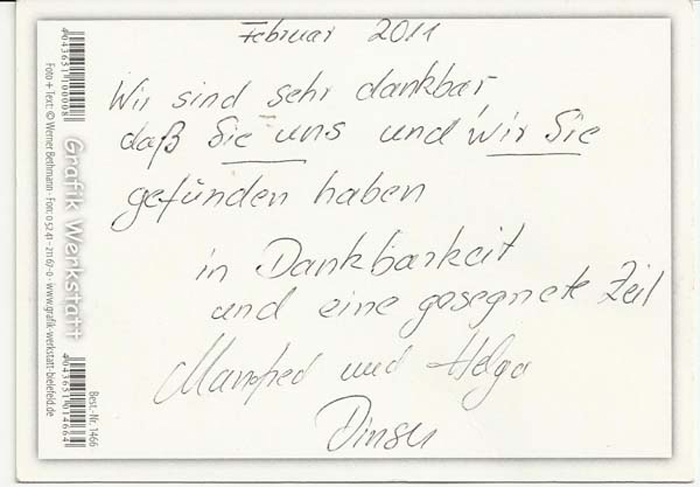 Februar 2011
Wir sind sehr dankbar,
daß Sie uns und wir Sie
gefunden haben
in Dankbarkeit
und eine gesegnete Zeit
Manfred und Helga
4043651100008
Grafik Werkstatt
Foto + Text: © Werner Bethmann · Fon: 0 52 41 - 211 67-0 · www.grafik-werkstatt-bielefeld.de
4043651014664
Best.-Nr. 1466